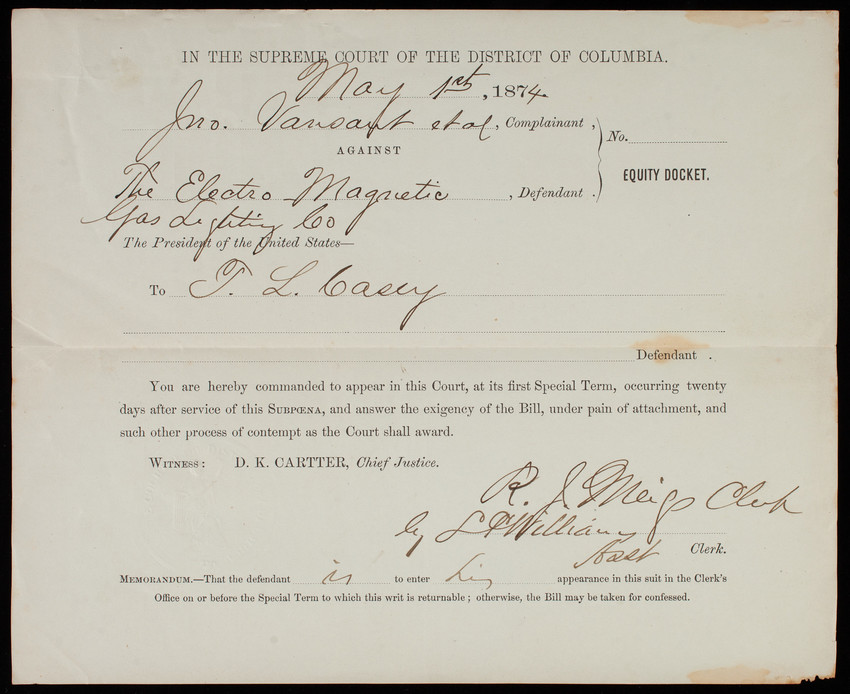 IN THE SUPREME COURT OF THE DISTRICT OF COLUMBIA.
May 1st, 1874
Jno. Vansant et al, Complainant,
No.
AGAINST
EQUITY DOCKET.
The Electro Magnetic, Defendant.
Gas Lighting Co
The President of the United States—
To T. L. Casey
Defendant .
You are hereby commanded to appear in this Court, at its first Special Term, occurring twenty
days after service of this SUBPŒNA, and answer the exigency of the Bill, under pain of attachment, and
such other process of contempt as the Court shall award.
WITNESS: D. K. CARTTER, Chief Justice.
R. J. Meigs Clerk
by L P Williams
Asst Clerk.
MEMORANDUM.—That the defendant is to enter his appearance in this suit in the Clerk's
Office on or before the Special Term to which this writ is returnable; otherwise, the Bill may be taken for confessed.